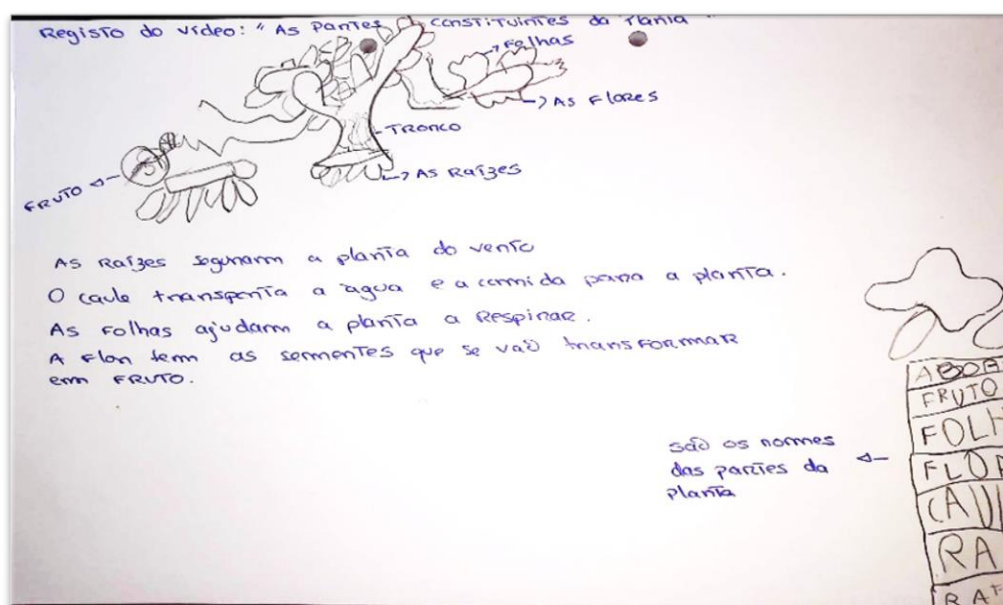 Registo do vídeo: "As Partes Constituintes da Planta"
Folhas
As Flores
TRONCO
As Raízes
FRUTO
As Raízes seguram a planta do vento
O caule transporta a água e a comida para a planta.
As Folhas ajudam a planta a Respirar.
A Flor tem as sementes que se vão transformar
em FRUTO.
são os nomes
das partes da
planta
FRUTO
FOLH
FLOR
CAUL
RA